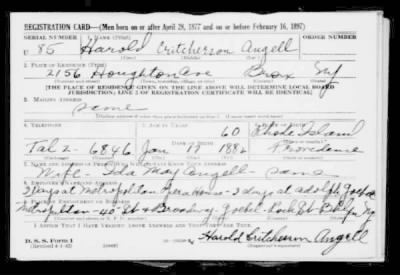 REGISTRATION CARD—(Men born on or after April 28, 1877 and on or before February 16, 1897)
SERIAL NUMBER 1. NAME (Print) ORDER NUMBER
U 85 Harold Critcherson Angell
(First) (Middle) (Last)
2. PLACE OF RESIDENCE (Print)
2156 Houghton Ave Bronx NY
[THE PLACE OF RESIDENCE GIVEN ON THE LINE ABOVE WILL DETERMINE LOCAL BOARD
JURISDICTION; LINE 2 OF REGISTRATION CERTIFICATE WILL BE IDENTICAL]
3. MAILING ADDRESS
Same
4. TELEPHONE 5. AGE IN YEARS 6. PLACE OF BIRTH
60 Rhode Island
DATE OF BIRTH
Tal 2-6846 Jan 19 Providence
7. NAME AND ADDRESS OF PERSON WHO WILL ALWAYS KNOW YOUR ADDRESS
Wife - Ida May Angell - Same
8. EMPLOYER'S NAME AND ADDRESS
3 days at Metropolitan Opera House - 3 days at Adolph
9. PLACE OF EMPLOYMENT OR BUSINESS
Metropolitan - 40 St & Broadway - Goebel - St Bklyn NY
I AFFIRM THAT I HAVE VERIFIED ABOVE ANSWERS AND THAT THEY ARE TRUE.
D. S. S. Form 1
(Revised 4-1-42) Harold Critcherson Angell